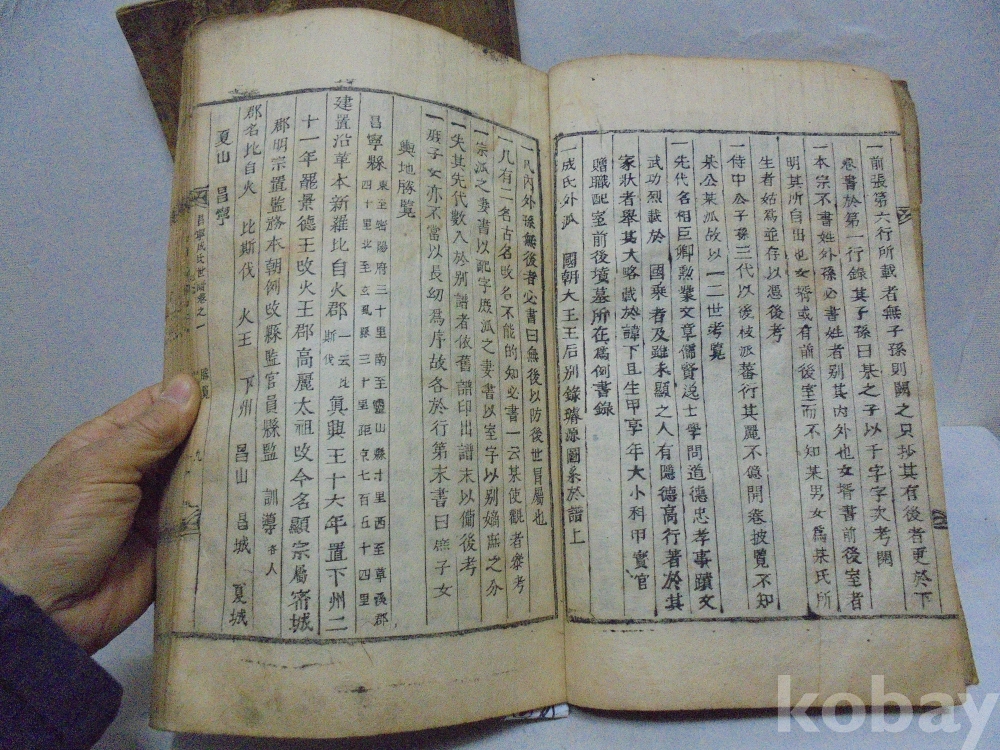 一前張第六行所載者無子孫則闕之只抄其有後者更於下
卷書於第一行錄其子孫曰某之子以千字字次考閱
一本宗不書姓外孫必書姓者別其內外也女婿書前後室者
明其所自出也女婿或有前後室而不知某男女爲某氏所
生者姑爲並存以憑後考
一侍中公子孫三代以後枝派蕃衍其麗不億開卷披覽不知
某公某派故以一二世考覧
一先代名相巨卿勲業文章儒賢逸士學問道德忠孝事蹟文
武功烈載於 國乘者及雖未顯之人有隱德高行著於其
家狀者舉其大略載於諱下且生甲享年大小科甲實官
贈職配室前後墳墓所在槅例書錄
一成氏外派 國朝大王王后別錄璿源圖系於譜上
一氏內外孫無後者必書曰無後以防後世冒屬也
一凡有一名古名改名不能的知必書一云某使觀者叅考
一宗派之妻書以配字庶派之妻書以室字以別嫡庶之分
一失其先代數人於別譜者依舊譜印出譜末以備後考
一庶子女亦不當以長幼爲序故各於行第末書曰庶子女
輿地勝覧
昌寧縣 東至密陽府三十里南至靈山縣十里西至草溪郡
四十里北至玄風縣三十里距京七百五十四里
建置沿革本新羅比自火郡 一云比斯伐 眞興王十六年置下州二
十一年罷景德王改火王郡高麗太祖改今名顯宗屬密城
郡明宗置監務本朝例改縣監官員縣監 訓導 各一人
郡名比自火 比斯伐 火王 下州 昌山 昌城 夏城
夏山 昌寧
昌寧成氏世譜卷之一
kobay